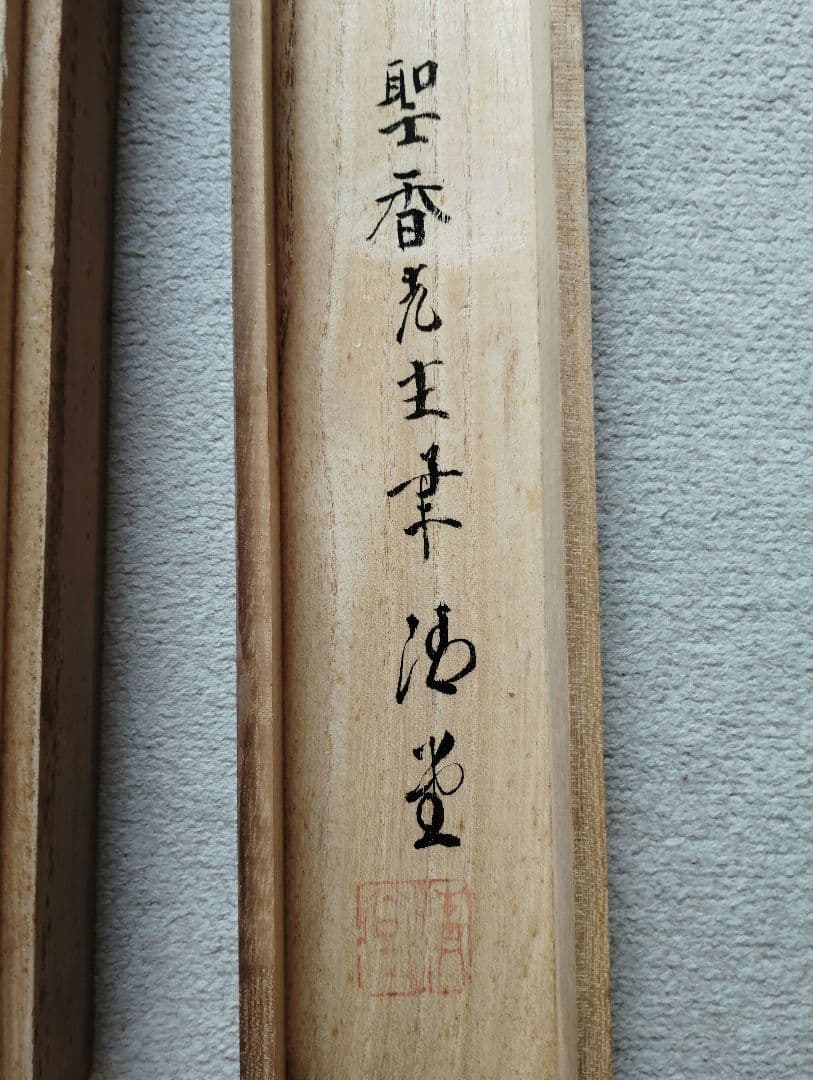 聖香先生筆 堂